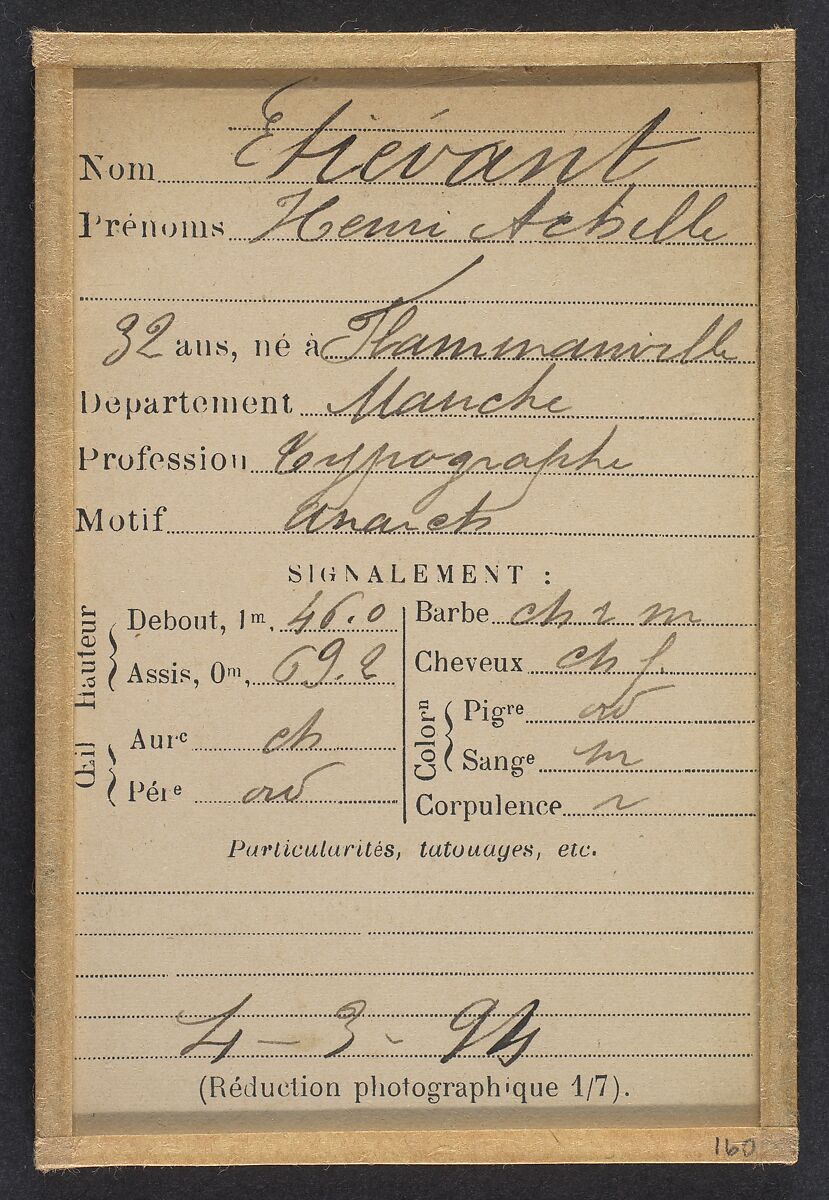 Nom Etiévant
Prénoms Henri Achille
32 ans, né à Flammanville
Département Manche
Profession Typographe
Motif Anarch
SIGNALEMENT :
Hauteur
Debout, 1m, 46.0
Assis, 0m, 69.2
Œil
Aure ch
Pére
Barbe ch r m
Cheveux ch f.
Colorn
Pigre
Sange m
Corpulence
Particularités, tatouages, etc.
4 - 3 - 94
(Réduction photographique 1/7).
160